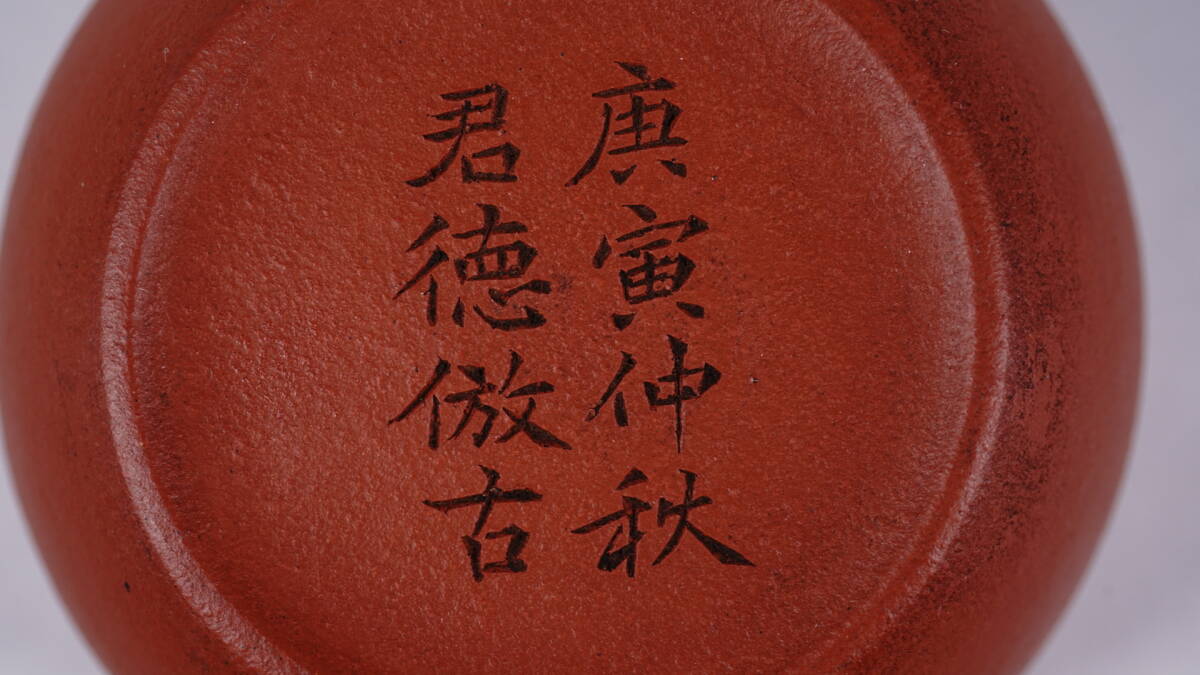 庚寅仲秋
君德倣古